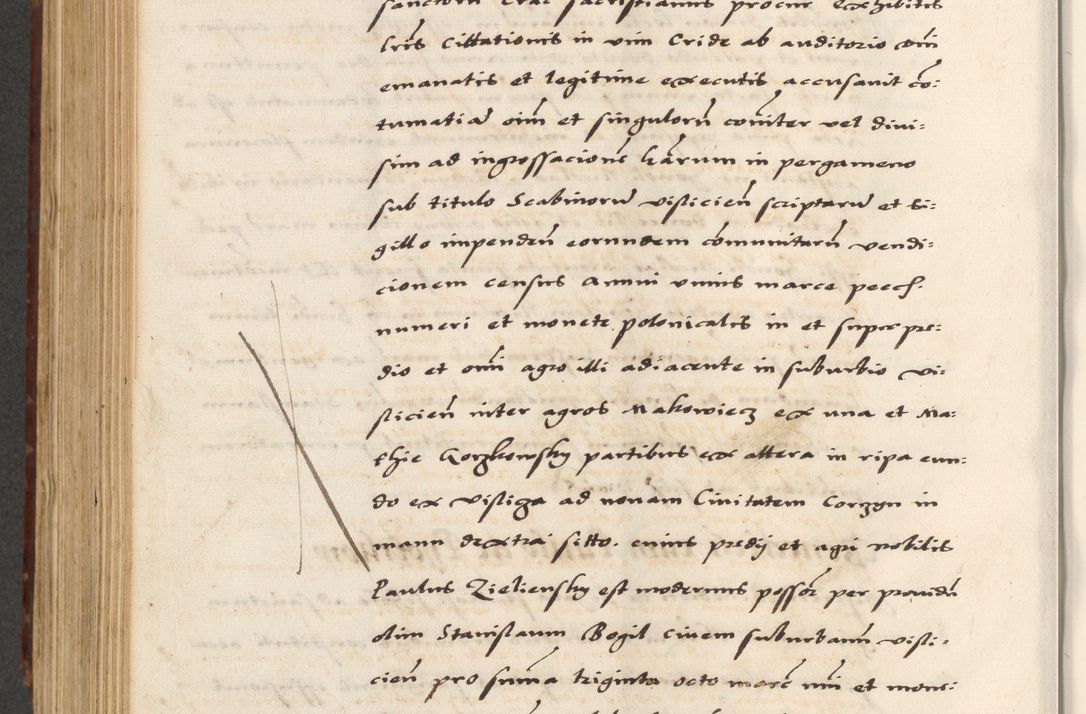 sanctoru Crac sacristianus procur exhibitis
lris Cittationis in vim Cride ab auditorio oni
emanatis et legitime executis accusavit co=
tumatia oim et singuloru comiter vel divi=
sim ad ingrossacione harum in pergameno
sub titulo Scabinoru visticien scriptaru et si=
gillo impenden eorundem comunitaru vendi=
cionem census Annui unius marce pecc.
numeri et monete polonicalis in et super pre=
dio et omi agro illi adiacente in suburbio vi=
sticien inter agros Makowiecz ex una et Ma=
thie Gorzkowsky partibus ex altera in ripa eun=
do ex Vislicza ad novam Civitatem Corzyn in
manu dextra sitto. cuius predij et agri nobilis
Paulus Zieliensky est modernus possor per providu
olim Stanislaum Bogil civem suburbanu visti=
cien pro suma triginta octo marc nri et mone=